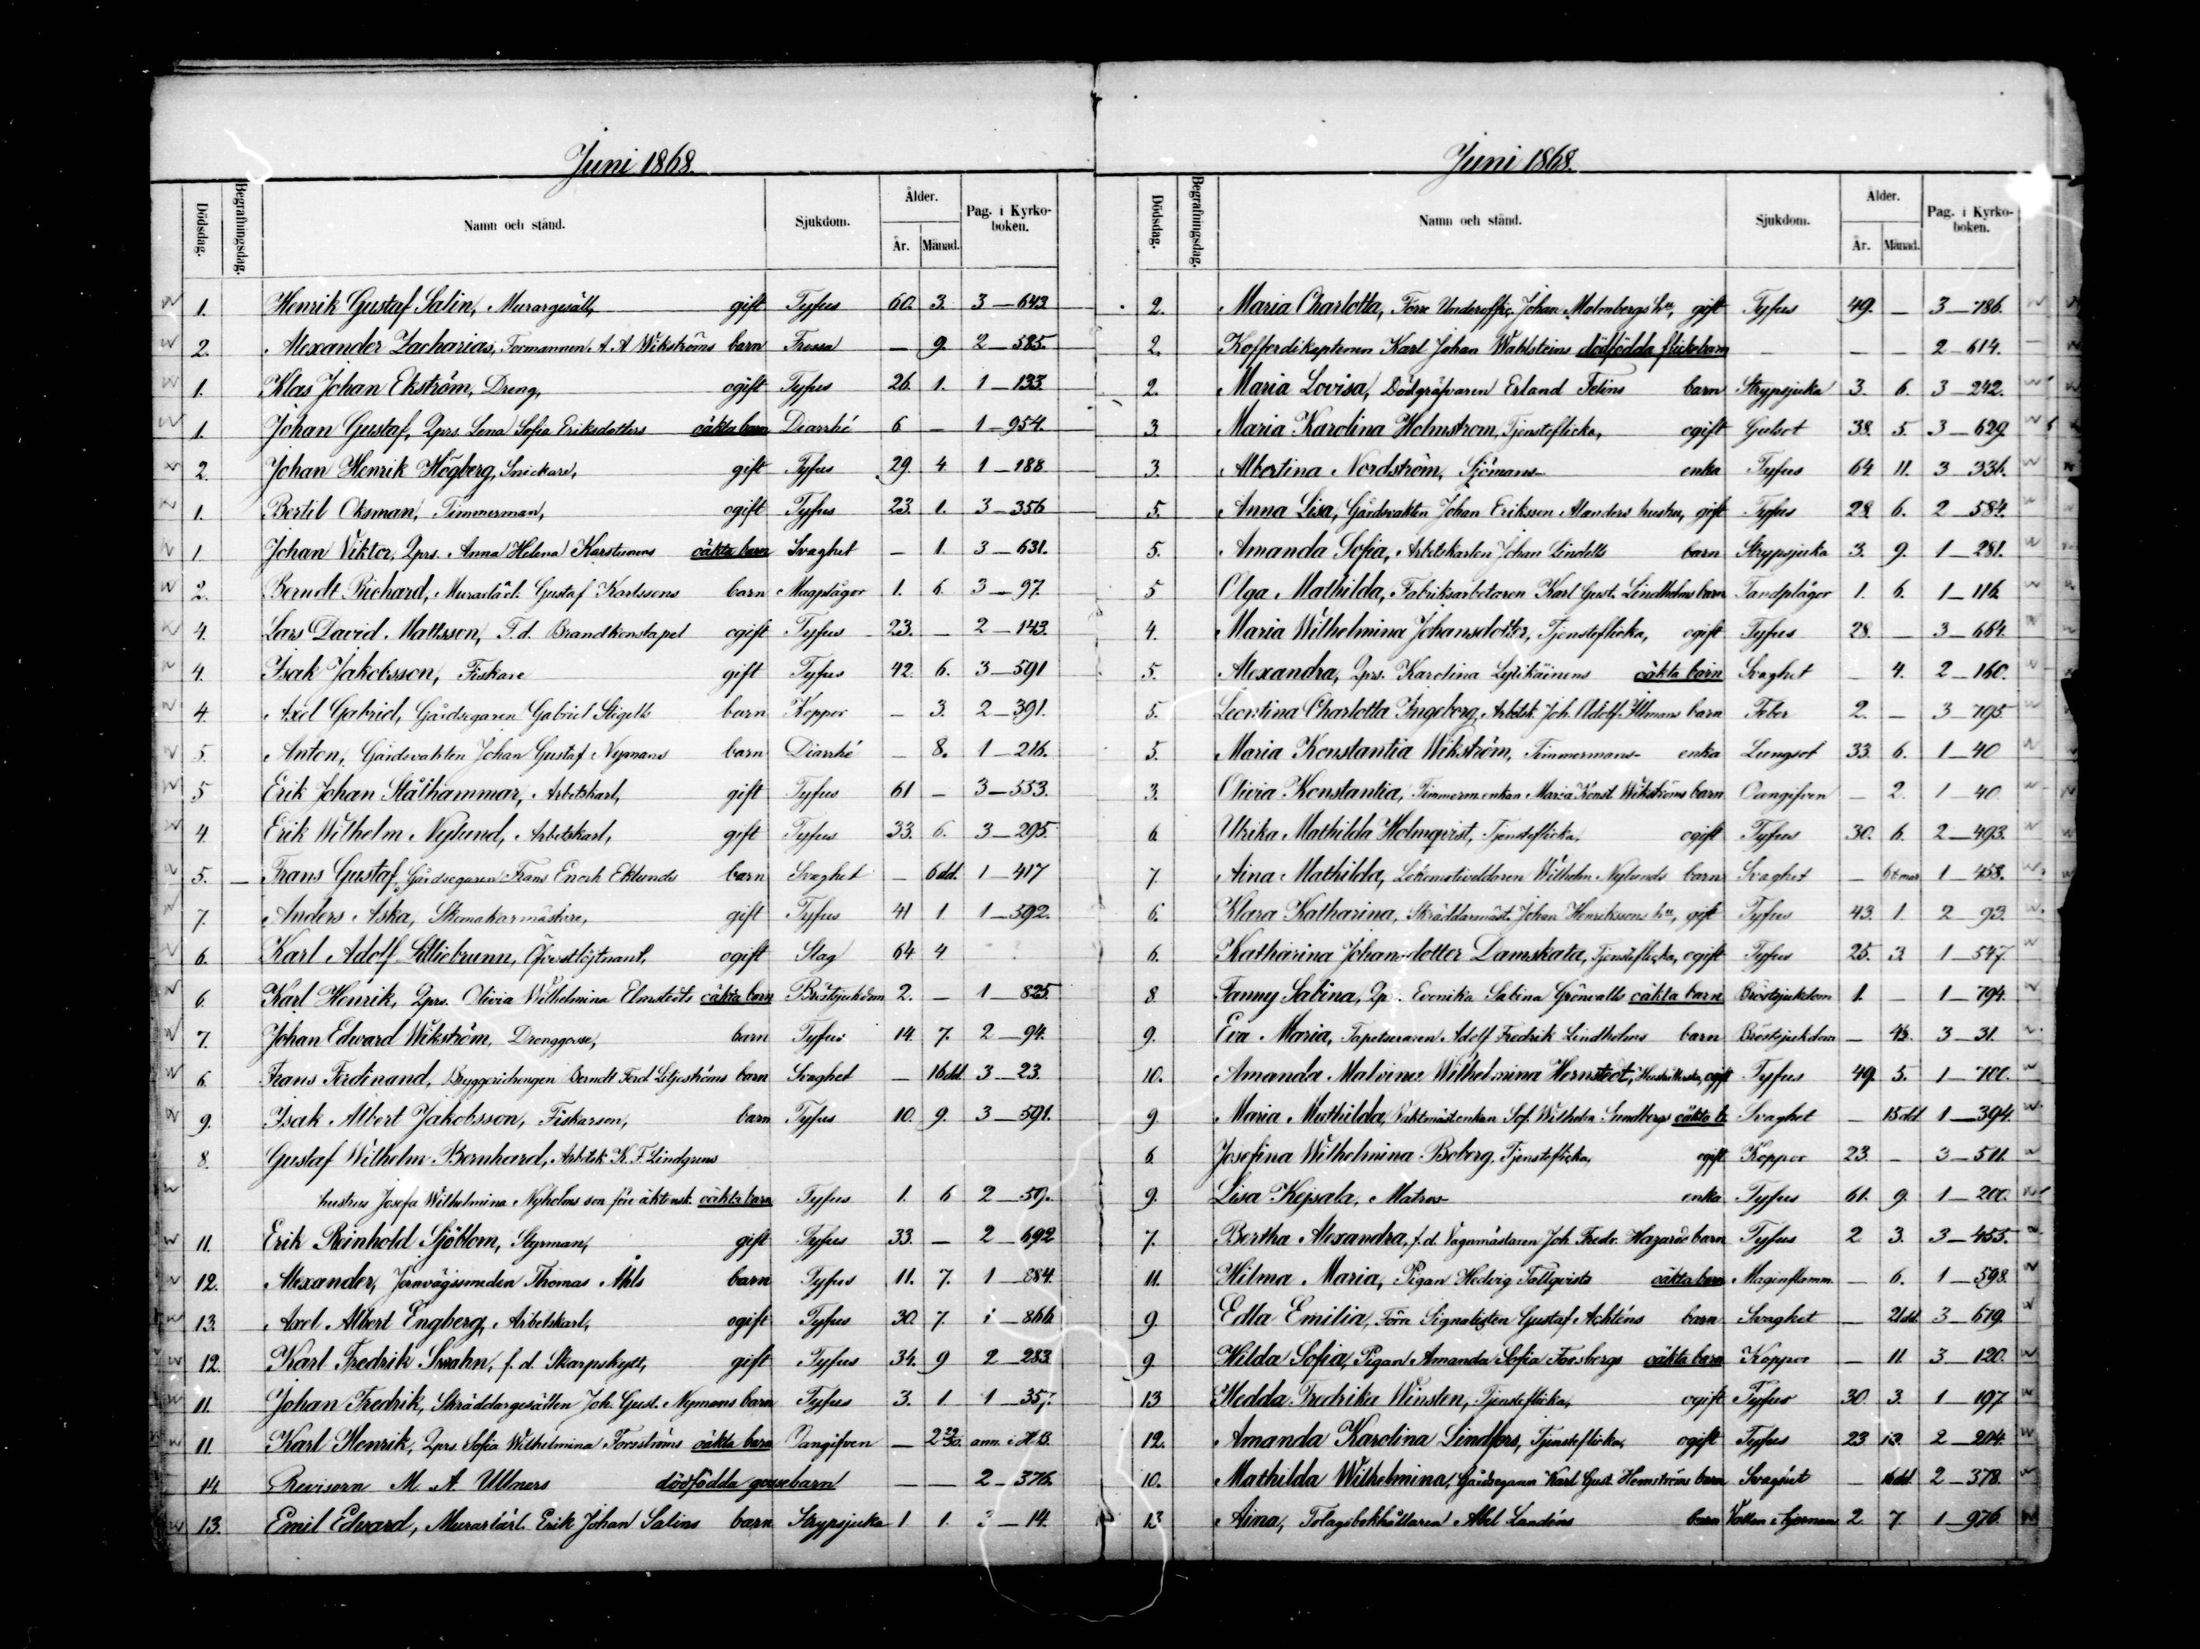 Juni 1868.
Dödsdag. Begrafningsdag. Namn och stånd. Sjukdom. Ålder. Pag. i Kyrko-
År. Månad. boken.
1. Henrik Gustaf Salin, Murargesäll, gift Tyfus 60. 3. 3 — 643
2. Alexander Zacharias, Formannen A. A Wikströms barn Frossa — 9. 2 — 585.
1. Klas Johan Ekström, Dreng, ogift Tyfus 26. 1. 1 — 133
1. Johan Gustaf, Qprs. Lena Sofia Eriksdotters oäkta barn Diarrhé 6 — 1 — 954.
2. Johan Henrik Högberg, Snickare, gift Tyfus 29 4 1 — 188
1. Bertil Oksman, Timmerman, ogift Tyfus 23. 1. 3 — 356
1. Johan Viktor, Qprs. Anna Helena Karstinens oäkta barn Svaghet — 1. 3 — 631.
2. Berndt Richard, Murarlärl. Gustaf Karlssons barn Magplågor 1. 6. 3 — 97.
4. Lars David Mattsson, F.d. Brandkonstapel ogift Tyfus 23. — 2 — 143.
4. Isak Jakobsson, Fiskare gift Tyfus 42. 6. 3 — 591
4. Axel Gabriel, Gårdsegaren Gabriel Stigells barn Koppor — 3. 2 — 391.
5. Anton, Gårdsvakten Johan Gustaf Nymans barn Diarrhé — 8. 1 — 216.
5 Erik Johan Stålhammar, Arbetskarl, gift Tyfus 61 — 3 — 553.
4. Erik Wilhelm Nylund, Arbetskarl, gift Tyfus 33. 6. 3 — 295.
5. — Frans Gustaf, Gårdsegaren Frans Enoch Eklunds barn Svaghet — 6 dd. 1 — 417
7. Anders Aska, Skomakarmästare, gift Tyfus 41 1 1 — 592.
6. Karl Adolf Lilliebrunn, Öfverstlöjtnant, ogift Slag 64 4
6. Karl Henrik, Qprs. Olivia Wilhelmina Elmstedts oäkta barn Bröstsjukdom 2. — 1 — 825.
7. Johan Edvard Wikström, Drenggosse, barn Tyfus 14. 7. 2 — 94.
6. Frans Ferdinand, Bryggeridrengen Berndt Ferd Liljeströms barn Svaghet — 16 dd. 3 — 23.
9. Isak Albert Jakobsson, Fiskarson, barn Tyfus 10. 9. 3 — 591.
8. Gustaf Wilhelm Bernhard, Arbetsk. K. F. Lindgrens
hustrus Josefa Wilhelmina Nyholms son före äktensk. oäkta barn Tyfus 1. 6 2 — 59.
11. Erik Reinhold Sjöblom, Styrman, gift Tyfus 33. — 2 — 692
12. Alexander, Jernvägssmeden Thomas Åhls barn Tyfus 11. 7. 1 — 884.
13. Axel Albert Engberg, Arbetskarl, ogift Tyfus 30. 7. 1 — 866.
12. Karl Fredrik Swahn, f. d. Skarpskytt, gift Tyfus 34. 9 2 283
11. Johan Fredrik, Skräddargesällen Joh. Gust. Nymans barn Tyfus 3. 1 1 — 357.
11. Karl Henrik, Qprs. Sofia Wilhelmina Forsströms oäkta barn Oangifven — 2 22/30. ann. i H.B.
14. Revisorn M. A. Ullners dödfödda gossebarn — — 2 — 376.
13. Emil Edvard, Murarlärl. Erik Johan Salins barn Strypsjuka 1 1. 3 — 14.
Juni 1868.
Dödsdag. Begrafningsdag. Namn och stånd. Sjukdom. Ålder. Pag. i Kyrko-
År. Månad. boken.
2. Maria Charlotta, Förre Underoffic. Johan Malmbergs hu, gift Tyfus 49. — 3 — 786.
2. Kofferdikaptenen Karl Johan Wahlsteins dödfödda flickebarn — — — 2 — 614.
2. Maria Lovisa, Dödgräfvaren Erland Felins barn Strypsjuka 3. 6. 3 — 242.
3. Maria Karolina Holmstrom, Tjensteflicka, ogift Gulsot 38. 5. 3 — 629.
3. Albertina Nordström, Sjömans- enka Tyfus 64. 11. 3 — 336.
5. Anna Lisa, Gårdsvakten Johan Eriksson Alanders hustru, gift Tyfus 28. 6. 2 — 584.
5. Amanda Sofia, Arbetskarlen Johan Lindells barn Strypsjuka 3. 9. 1 — 281.
5 Olga Mathilda, Fabriksarbetaren Karl Gust. Lindholms barn Tandplågor 1. 6. 1 — 116.
4. Maria Wilhelmina Johansdotter, Tjensteflicka, ogift Tyfus 28. — 3 — 664.
5. Alexandra, Qprs. Karolina Lylikäinens oäkta barn Svaghet — 4. 2 — 160.
5. Leontina Charlotta Ingeborg, Arbetsk. Joh. Adolf Illmans barn Feber 2. — 3 — 795.
5. Maria Konstantia Wikström, Timmermans- enka Lungsot 33. 6. 1 — 40
3. Olivia Konstantia, Timmerm.enkan Maria Konst. Wikströms barn Oangifven — 2. 1 — 40
6. Ulrika Mathilda Holmqvist, Tjensteflicka, ogift Tyfus 30. 6. 2 — 493.
7. Aina Mathilda, Lokomotiveldaren Wilhelm Nylunds barn Svaghet — 1 — 458.
6. Klara Katharina, Skräddarmäst. Johan Henrikssons hu, gift Tyfus 43. 1. 2 — 93.
6. Katharina Johansdotter Damskata, Tjensteflicka, ogift Tyfus 25. 3. 1 — 547.
8. Fanny Sabina, Qp. Evenika Sabina Grönvalls oäkta barn Bröstsjukdom 1. — 1 — 794.
9. Eva Maria, Tapetseraren Adolf Fredrik Lindholms barn Bröstsjukdom — 3 — 31.
10. Amanda Malvina Wilhelmina Hernstedt, Hushållerska, ogift Tyfus 49. 5. 1 — 700.
9. Maria Mathilda, Vaktmästenkan Sof. Wilhelm. Sundbergs oäkta b. Svaghet — 15 dd. 1 — 394.
6. Josefina Wilhelmina Boberg, Tjensteflicka, ogift Koppor 23. — 3 — 511.
9. Lisa Kejsala, Matros- enka Tyfus 61. 9. 1 — 200.
7. Bertha Alexandra, f. d. Vagnmästaren Joh. Fredr. Hazards barn Tyfus 2 3. 3 — 455.
11. Hilma Maria, Pigan Hedvig Tallqvists oäkta barn Maginflamm. — 6. 1 — 598.
9 Edla Emilia, Förre Signalisten Gustaf Achténs barn Svaghet — 21 dd. 3 — 619.
9 Hilda Sofia, Pigan Amanda Sofia Forsbergs oäkta barn Koppor — 11. 3 — 120.
13 Hedda Fredrika Winsten, Tjensteflicka, ogift Tyfus 30 3. 1 — 197
12. Amanda Karolina Lindfors, Tjensteflicka, ogift Tyfus 23 2 — 204.
10. Mathilda Wilhelmina, Gårdsegaren Karl Gust. Hemströms barn Svaghet — 16 dd. 2 — 378.
13 Aina, Tolagsbokhållaren Abel Landéns barn Vatten i hjernan 2 7. 1 — 976.